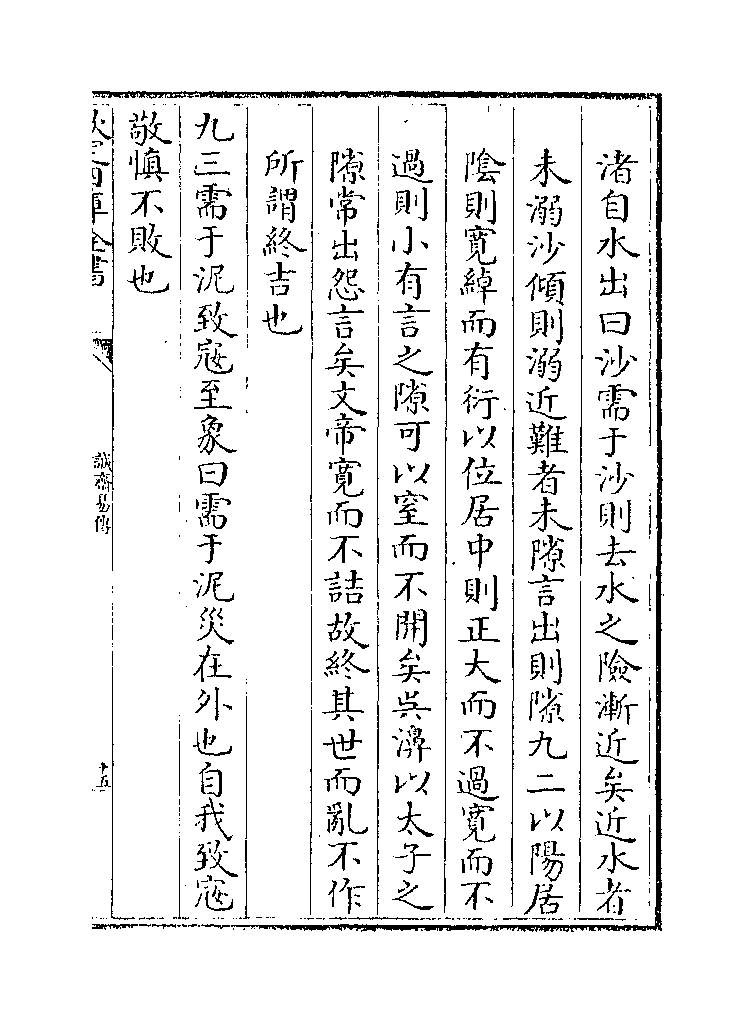 渚自水出曰沙需于沙則去水之險漸近矣近水者
未溺沙傾則溺近難者未隙言出則隙九二以陽居
陰則寛綽而有衍以位居中則正大而不過寛而不
過則小有言之隙可以窒而不開矣吳濞以太子之
隙常出怨言矣文帝寛而不詰故終其世而亂不作
所謂終吉也
九三需于泥致寇至象曰需于泥災在外也自我致寇
敬慎不敗也
欽定四庫全書
誠齋易傳
十五